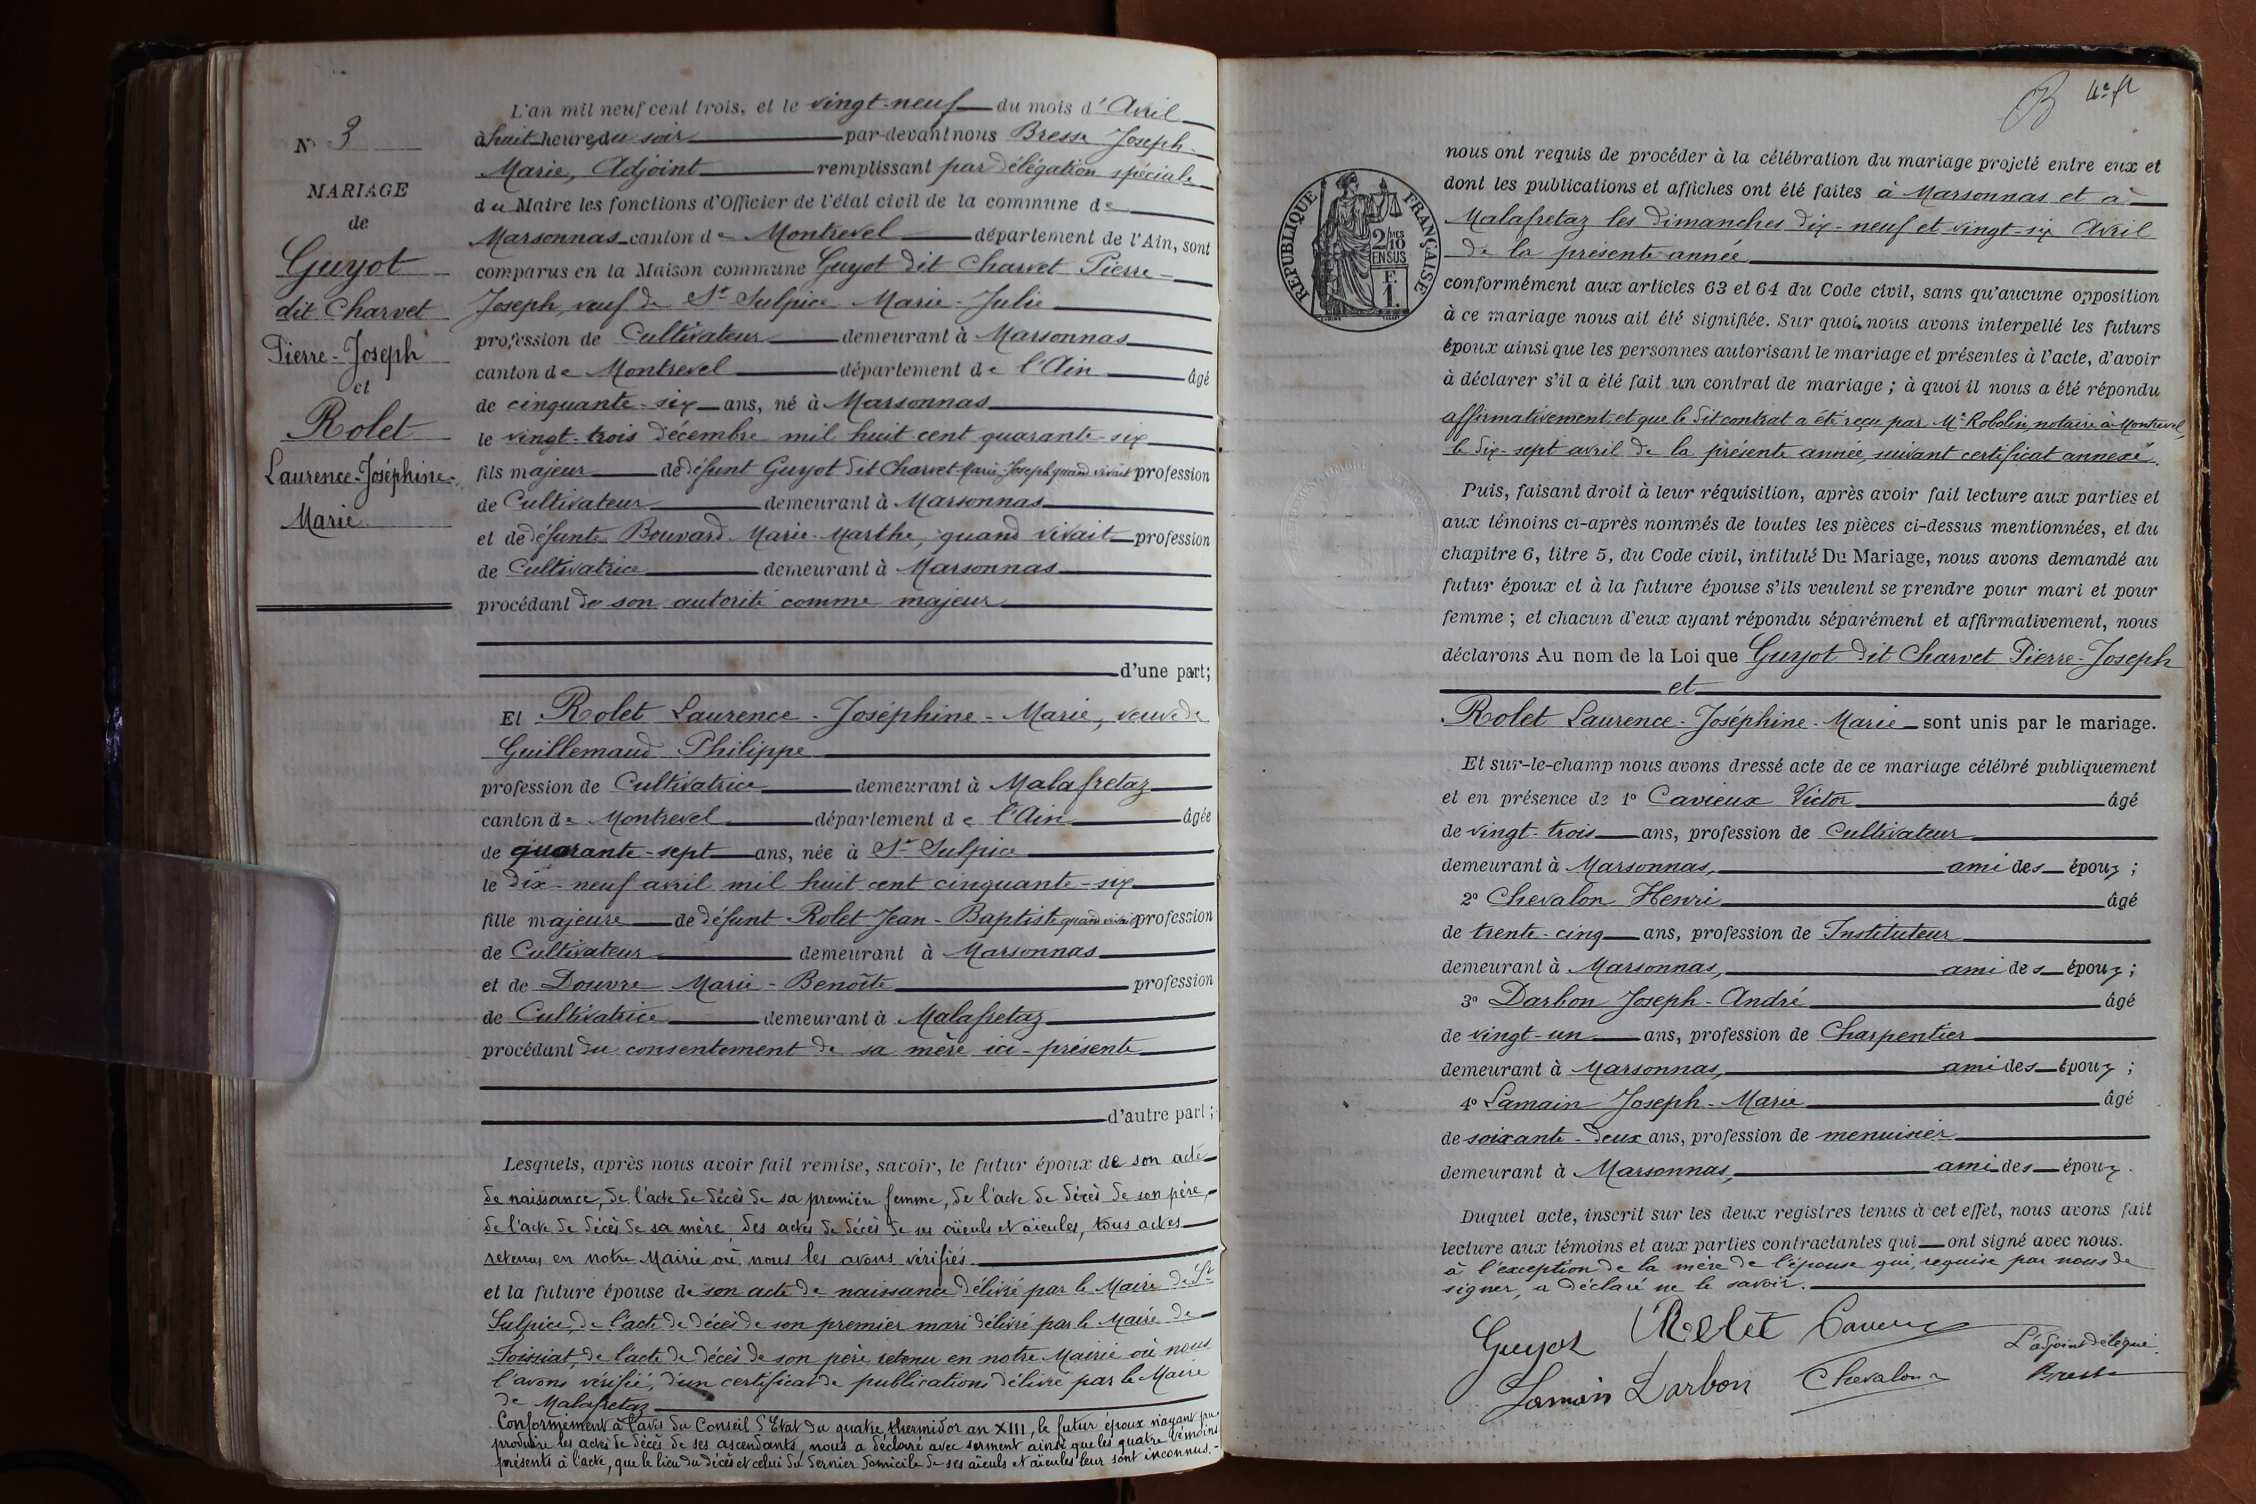 N° 3
MARIAGE
de
Guyot
dit Charvet
Pierre-Joseph
et
Rolet
Laurence-Joséphine-
Marie
L'an mil neuf cent trois, et le vingt-neuf du mois d'Avril
à huit heures du soir par-devant nous Bresse Joseph-
Marie, Adjoint remplissant par délégation spéciale
du Maire les fonctions d'Officier de l'état civil de la commune de
Marsonnas canton de Montrevel département de l'Ain, sont
comparus en la Maison commune Guyot dit Charvet Pierre-
Joseph, veuf de St Sulpice Marie-Julie
profession de Cultivateur demeurant à Marsonnas
canton de Montrevel département de l'Ain âgé
de cinquante-six ans, né à Marsonnas
le vingt-trois décembre mil huit cent quarante-six
fils majeur de défunt Guyot dit Charvet Marie-Joseph quand vivait profession
de Cultivateur demeurant à Marsonnas
et de défunte Bouvard Marie-Marthe, quand vivait profession
de Cultivatrice demeurant à Marsonnas
procédant de son autorité comme majeur
d'une part;
Et Rolet Laurence-Joséphine-Marie, veuve de
Guillemaud Philippe
profession de Cultivatrice demeurant à Malafretaz
canton de Montrevel département de l'Ain âgée
de quarante-sept ans, née à St Sulpice
le dix-neuf avril mil huit cent cinquante-six
fille majeure de défunt Rolet Jean-Baptiste quand vivait profession
de Cultivateur demeurant à Marsonnas
et de Douvre Marie-Benoîte profession
de Cultivatrice demeurant à Malafretaz
procédant du consentement de sa mère ici-présente
d'autre part;
Lesquels, après nous avoir fait remise, savoir, le futur époux de son acte
de naissance, de l'acte de décès de sa première femme, de l'acte de décès de son père,
de l'acte de décès de sa mère, des actes de décès de ses aïeuls et aïeules, tous actes
retenus en notre Mairie où nous les avons vérifiés.
et la future épouse de son acte de naissance délivré par le Maire de St
Sulpice, de l'acte de décès de son premier mari délivré par le Maire de
Foissiat, de l'acte de décès de son père retenu en notre Mairie où nous
l'avons vérifié, d'un certificat de publications délivré par le Maire
de Malafretaz
Conformément à l'avis du Conseil d'Etat du quatre thermidor an XIII, le futur époux n'ayant pu
produire les actes de décès de ses ascendants, nous a déclaré avec serment ainsi que les quatre témoins
présents à l'acte, que le lieu du décès et celui du dernier domicile de ses aïeuls et aïeules leur sont inconnus.
4e
RÉPUBLIQUE FRANÇAISE
2/10 EN SUS
F.
1.
nous ont requis de procéder à la célébration du mariage projeté entre eux et
dont les publications et affiches ont été faites à Marsonnas et à
Malafretaz les dimanches dix-neuf et vingt-six Avril
de la présente année
conformément aux articles 63 et 64 du Code civil, sans qu'aucune opposition
à ce mariage nous ait été signifiée. Sur quoi, nous avons interpellé les futurs
époux ainsi que les personnes autorisant le mariage et présentes à l'acte, d'avoir
à déclarer s'il a été fait un contrat de mariage; à quoi il nous a été répondu
affirmativement et que le dit contrat a été reçu par Me Robolin, notaire à Montrevel,
le dix-sept avril de la présente année, suivant certificat annexé.
Puis, faisant droit à leur réquisition, après avoir fait lecture aux parties et
aux témoins ci-après nommés de toutes les pièces ci-dessus mentionnées, et du
chapitre 6, titre 5, du Code civil, intitulé Du Mariage, nous avons demandé au
futur époux et à la future épouse s'ils veulent se prendre pour mari et pour
femme; et chacun d'eux ayant répondu séparément et affirmativement, nous
déclarons Au nom de la Loi que Guyot dit Charvet Pierre-Joseph
et
Rolet Laurence-Joséphine-Marie sont unis par le mariage.
Et sur-le-champ nous avons dressé acte de ce mariage célébré publiquement
et en présence de 1° Cavieux Victor âgé
de vingt-trois ans, profession de Cultivateur
demeurant à Marsonnas, ami des époux;
2° Chevalon Henri âgé
de trente-cinq ans, profession de Instituteur
demeurant à Marsonnas, ami des époux;
3° Darbon Joseph-André âgé
de vingt-un ans, profession de Charpentier
demeurant à Marsonnas, ami des époux;
4° Lamain Joseph-Marie âgé
de soixante-deux ans, profession de menuisier
demeurant à Marsonnas, ami des époux.
Duquel acte, inscrit sur les deux registres tenus à cet effet, nous avons fait
lecture aux témoins et aux parties contractantes qui ont signé avec nous.
à l'exception de la mère de l'épouse qui, requise par nous de
signer, a déclaré ne le savoir.
Guyot Rolet Cavieux
L'adjoint délégué.
Lamain Darbon Chevalon Bresse